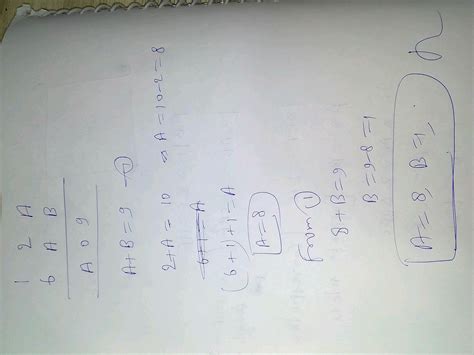 1 2 A
6 A B
A 0 9
A+B=9 —①
2+A=10 ⇒A=10-2=8
6+1=A
(6+1+1=A
A=8
from ①
8+B=9
B=9-8=1
A=8, B=1